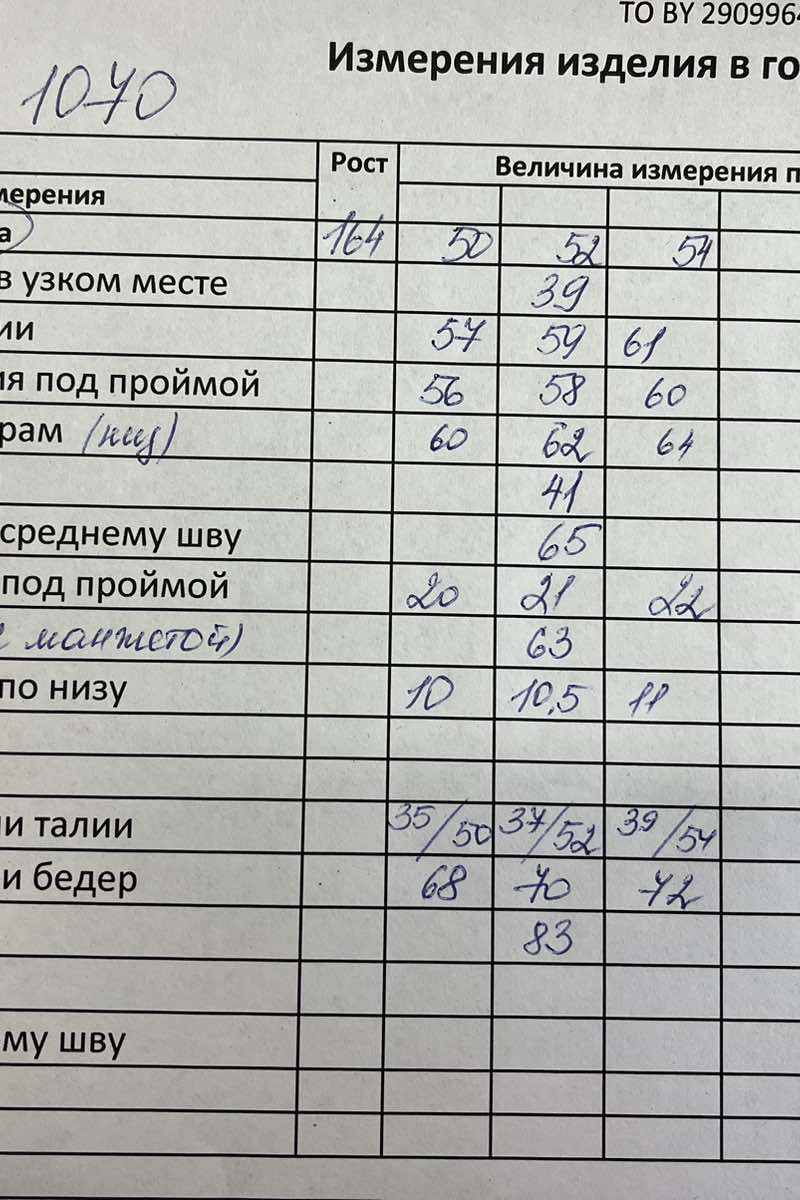 ТО BY 2909964
Измерения изделия в го
1070
Рост Величина измерения п
мерения
а 164 50 52 54
в узком месте 39
ии 57 59 61
ия под проймой 56 58 60
рам (низ) 60 62 64
41
среднему шву 65
под проймой 20 21 22
с манжетой) 63
по низу 10 10,5 11
ии талии 35/50 37/52 39/54
и бедер 68 70 72
83
му шву